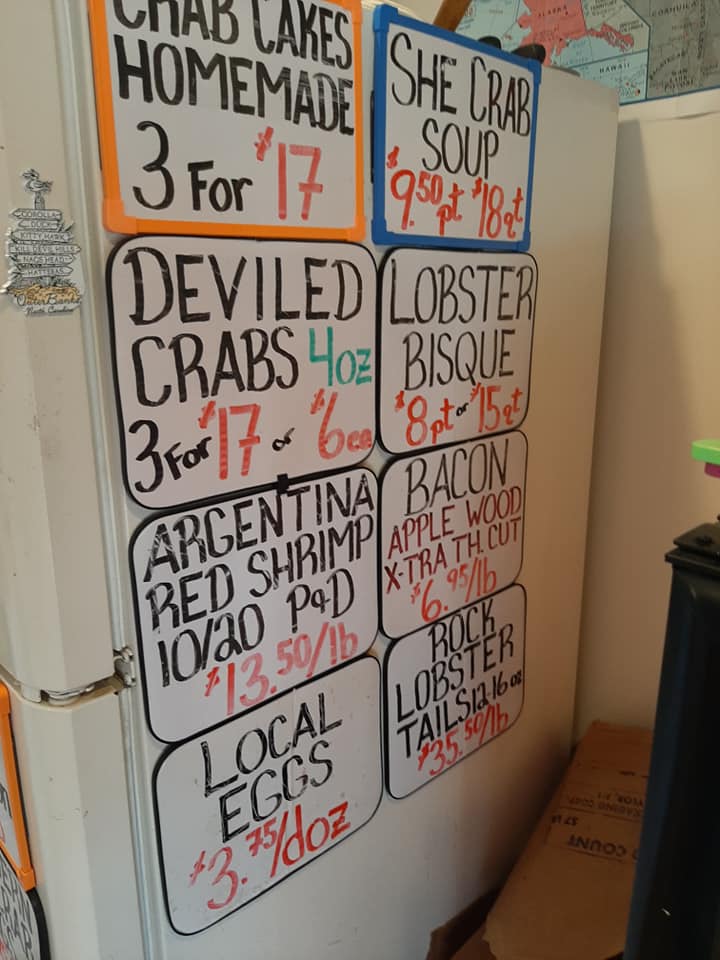 CRAB CAKES
HOMEMADE
3 For $17
SHE CRAB
SOUP
$9.50 pt $18 qt
DEVILED
CRABS 4oz
3 For $17 or $6 ea
LOBSTER
BISQUE
$8 pt or $15 qt
ARGENTINA
RED SHRIMP
10/20 P&D
$13.50/lb
BACON
APPLE WOOD
X-TRA TH. CUT
$6.95/lb
LOCAL
EGGS
$3.75/doz
ROCK
LOBSTER
TAILS 12-16 oz
$35.50/lb
COROLLA
DUCK
KITTY HAWK
KILL DEVIL HILLS
NAGS HEAD
HATTERAS
Outer Banks
North Carolina
ALASKA
HAWAII
COAHUILA
COUNT